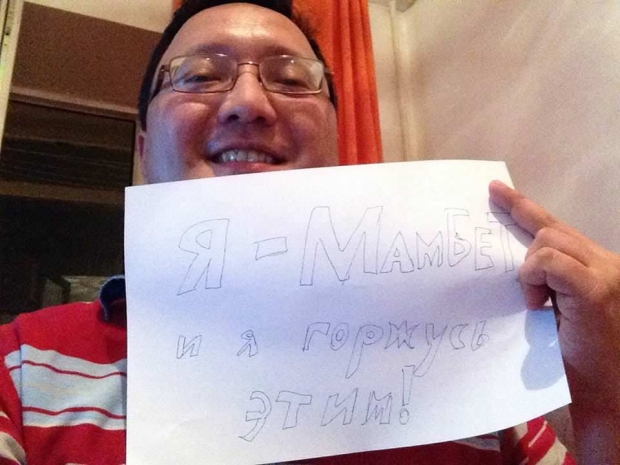 Я - МАМБЕТ
и я горжусь
этим!